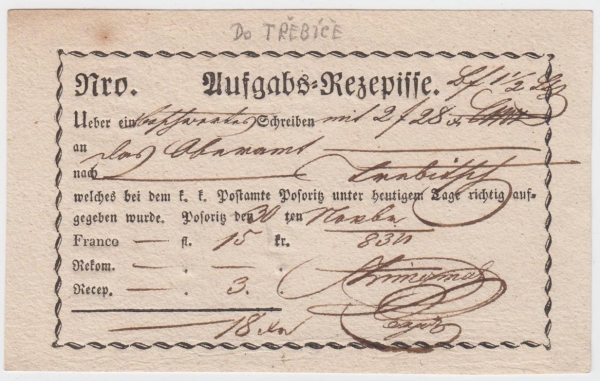 Do TŘEBÍČE
Nro. Aufgabs=Rezepisse.
Ueber ein Schreiben mit 2 f 28 x
an das Oberamt
nach Trebitsch
welches bei dem k. k. Postamte Posoritz unter heutigem Tage richtig auf-
gegeben wurde. Posoritz den 30 ten Novbr
Franco — fl. 15 kr. 830
Rekom. — . — .
Recep. — . 3. .
18 Xr